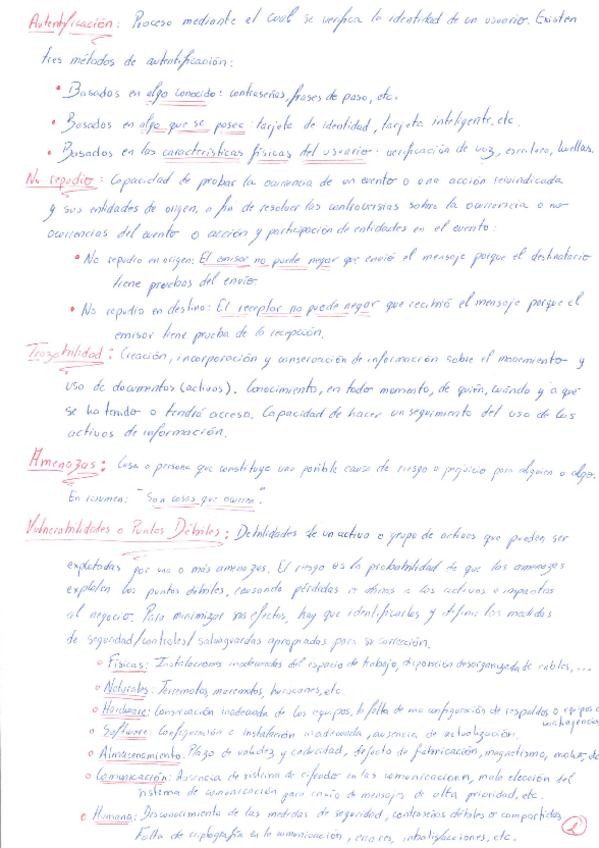 Autentificación: Proceso mediante el cual se verifica la identidad de un usuario. Existen
tres métodos de autentificación:
• Basados en algo conocido: contraseñas, frases de paso, etc.
• Basados en algo que se posee: tarjeta de identidad, tarjeta inteligente, etc.
• Basados en las características físicas del usuario: verificación de voz, escritura, huellas.
No repudio: Capacidad de probar la ocurrencia de un evento o una acción reivindicada
y sus entidades de origen, a fin de resolver las controversias sobre la ocurrencia o no
ocurrencias del evento o acción y participación de entidades en el evento:
• No repudio en origen: El emisor no puede negar que envió el mensaje porque el destinatario
tiene pruebas del envío.
• No repudio en destino: El receptor no puede negar que recibió el mensaje porque el
emisor tiene prueba de la recepción.
Trazabilidad: Creación, incorporación y conservación de información sobre el movimiento y
uso de documentos (activos). Conocimiento, en todo momento, de quién, cuándo y a qué
se ha tenido o tendrá acceso. Capacidad de hacer un seguimiento del uso de los
activos de información.
Amenazas: Cosa o persona que constituye una posible causa de riesgo o perjuicio para alguien o algo.
En resumen: "Son cosas que ocurren".
Vulnerabilidades o Puntos Débiles: Debilidades de un activo o grupo de activos que pueden ser
explotadas por una o más amenazas. El riesgo es la probabilidad de que las amenazas
exploten los puntos débiles, causando pérdidas o daños a los activos e impactos
al negocio. Para minimizar sus efectos, hay que identificarlos y definir las medidas
de seguridad/controles/salvaguardas apropiadas para su corrección.
• Físicas: Instalaciones inadecuadas del espacio de trabajo, disposición desorganizada de cables, ...
• Naturales: Terremotos, maremotos, huracanes, etc.
• Hardware: Conservación inadecuada de los equipos, la falta de una configuración de respaldos o equipos de
contingencia
• Software: Configuración e instalación inadecuada, ausencia de actualización.
• Almacenamiento: Plazo de validez y caducidad, defecto de fabricación, magnetismo,
• Comunicación: Ausencia de sistema de cifrado en las comunicaciones, mala elección del
sistema de comunicación para envío de mensajes de alta prioridad, etc.
• Humana: Desconocimiento de las medidas de seguridad, contraseñas débiles o compartidas,
Falta de criptografía en la comunicación, errores, insatisfacciones, etc.
2